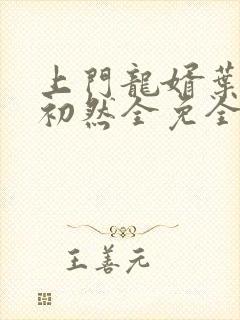 上門龍婿葉
初然全免全
王善元